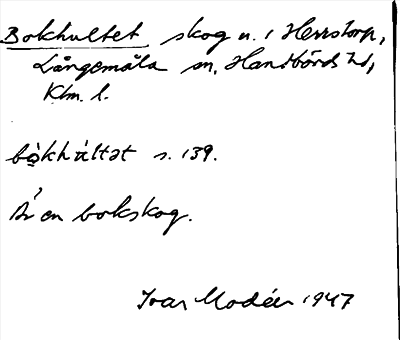 Bokhultet skog u. i Herrstorp,
Långemåla sn, Handbörds hd,
Klm. l.
bò̤khúltət s. 139.
Är en bokskog.
Ivar Modéer 1947